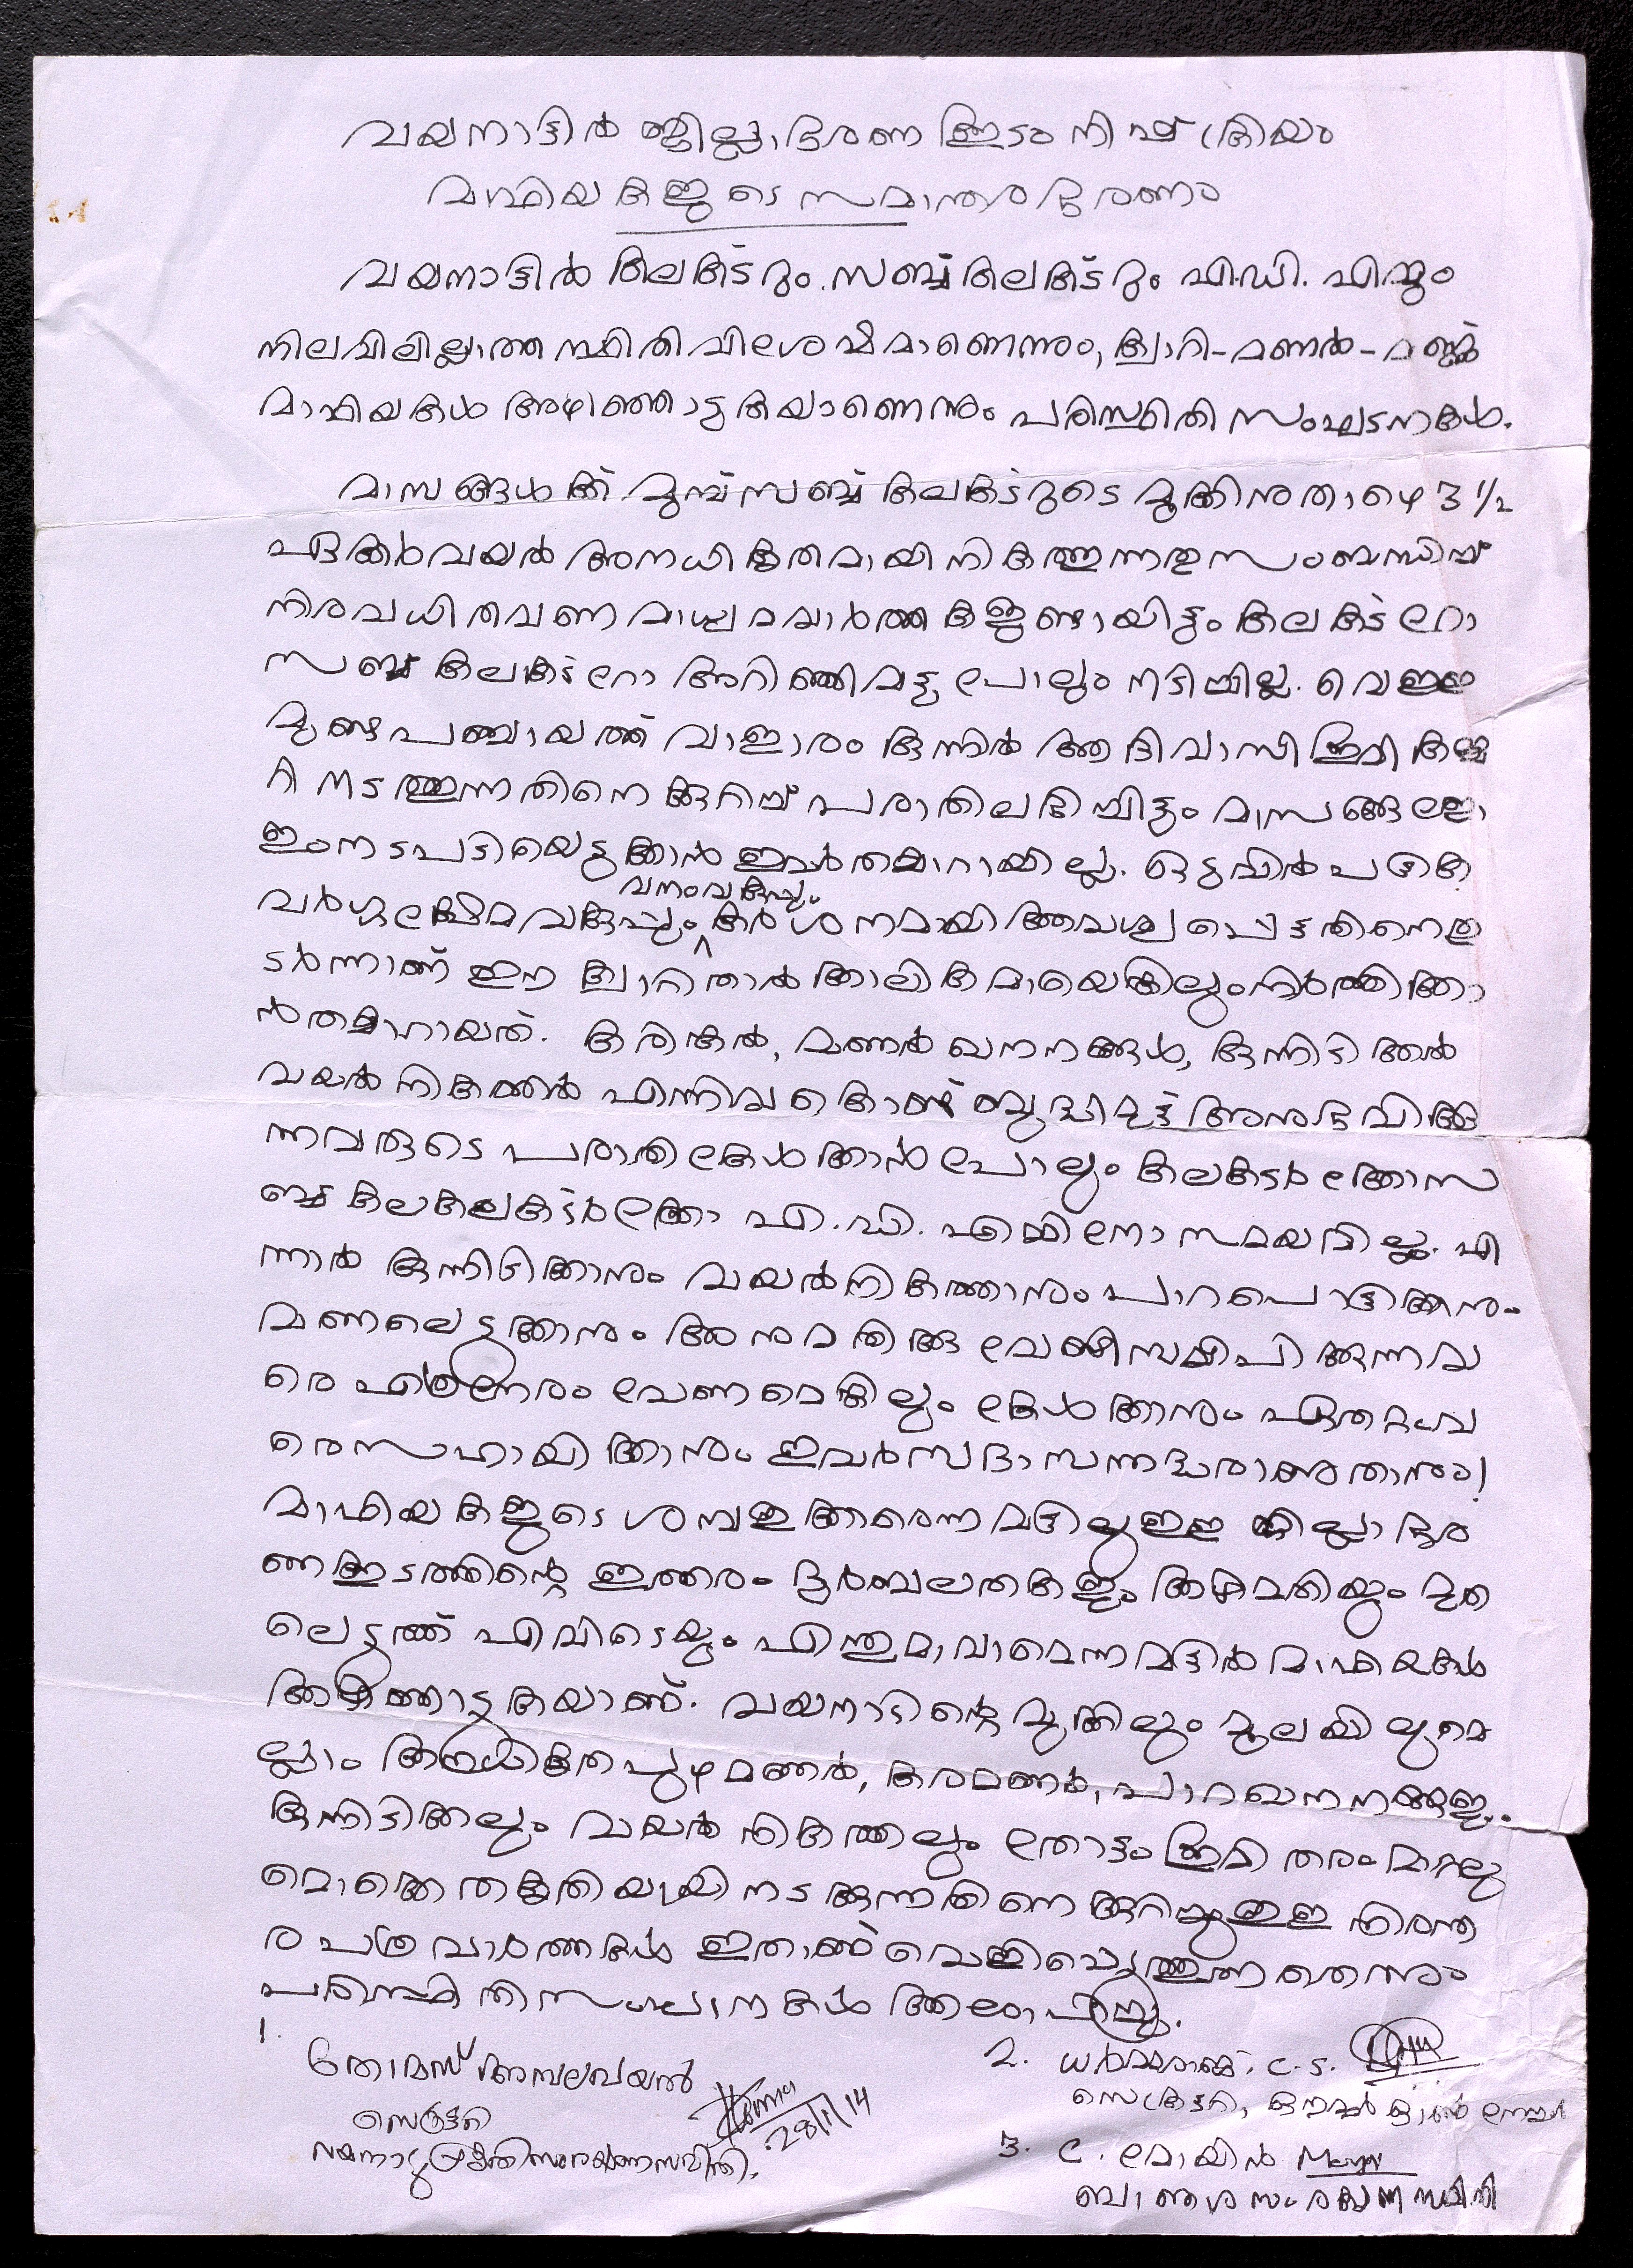 വയനാട്ടിൽ ജില്ലാഭരണകൂടം നിഷ്ക്രിയം
മാഫിയകളുടെ സമാന്തരഭരണം
വയനാട്ടിൽ കലക്ടറും സബ്ബ് കലക്ടറും എ.ഡി. എമ്മും
നിലവിലില്ലാത്ത സ്ഥിതിവിശേഷമാണെന്നും, ക്വാറി-മണൽ-മണ്ണ്
മാഫിയകൾ അഴിഞ്ഞാടുകയാണെന്നും പരിസ്ഥിതി സംഘടനകൾ.
മാസങ്ങൾക്ക് മുമ്പ് സബ്ബ് കലക്ടറുടെ മൂക്കിനുതാഴെ 3 1/2
ഏക്കർവയൽ അനധികൃതമായി നികത്തുന്നതു സംബന്ധിച്ച്
നിരവധിതവണ മാധ്യമവാർത്തകളുണ്ടായിട്ടും കലക്ടറോ
സബ്ബ് കലക്ടറോ അറിഞ്ഞമട്ടുപോലും നടിച്ചില്ല. വെള്ള
മുണ്ട പഞ്ചായത്ത് വാളാരം കുന്നിൽ ആദിവാസി ഭൂമി ക്വാ
റി നടത്തുന്നതിനെക്കുറിച്ച് പരാതിലഭിച്ചിട്ടും മാസങ്ങളോ
ളംനടപടിയെടുക്കാൻ ഇവർതയ്യാറായില്ല. ഒടുവിൽ പട്ടിക
വർഗ്ഗക്ഷേമവകുപ്പും വനംവകുപ്പും കർശനമായി ആവശ്യപ്പെട്ടതിനെതു
ടർന്നാണ് ഈ ക്വാറിതാൽക്കാലികമായെങ്കിലുംനിർത്തിക്കാ
ൻതയ്യാറായത്. കരിങ്കൽ, മണൽ ഖനനങ്ങൾ, കുന്നിടിക്കൽ
വയൽ നികത്തൽ എന്നിവ കൊണ്ട് ബുദ്ധിമുട്ട് അനുഭവിക്കു
ന്നവരുടെ പരാതി കേൾക്കാൻപോലും കലക്ടർക്കോ സ
ബ്ബ് കലക്ടർക്കോ എ.ഡി. എമ്മിനോ സമയമില്ല. എ
ന്നാൽ കുന്നിടിക്കാനും വയൽനികത്താനും പാറപൊട്ടിക്കാനും
മണലെടുക്കാനും അനുമതിക്കു വേണ്ടിസമീപിക്കുന്നവ
രെ എത്രനേരം വേണമെങ്കിലും കേൾക്കാനും ഏതറ്റംവ
രെസഹായിക്കാനും ഇവർസദാ സന്നദ്ധരാണുതാനും!
മാഫിയകളുടെ ശമ്പളക്കാരെന്നമട്ടിലുള്ള ജില്ലാഭര
ണകൂടത്തിന്റെ ഇത്തരം ദുർബലതകളും അഴിമതിയും മുത
ലെടുത്ത് എവിടെയും എന്തുമാവാമെന്നമട്ടിൽ മാഫിയകൾ
അഴിഞ്ഞാടുകയാണ്. വയനാടിന്റെ മുക്കിലും മൂലയിലുമെ
ല്ലാം അനധികൃത പുഴമണൽ, കരമണൽ, പാറഖനനങ്ങളും
കുന്നിടിക്കലും വയൽ നികത്തലും തോട്ടം ഭൂമി തരംമാറ്റലു
മൊക്കെ തകൃതിയായി നടക്കുന്നതിനെക്കുറിച്ചുള്ള നിരന്ത
ര പത്രവാർത്തകൾ ഇതാണ് വെളിപ്പെടുത്തുന്നതെന്നും
പരിസ്ഥിതിസംഘടനകൾ ആരോപിച്ചു.
1.
തോമസ് അമ്പലവയൽ
സെക്രട്ടറി
വയനാട് പ്രകൃതിസംരക്ഷണസമിതി.
28/1/14
2. ധർമ്മരാജ്. C.S.
സെക്രട്ടറി,
3. C.
സംരക്ഷണ സമിതി